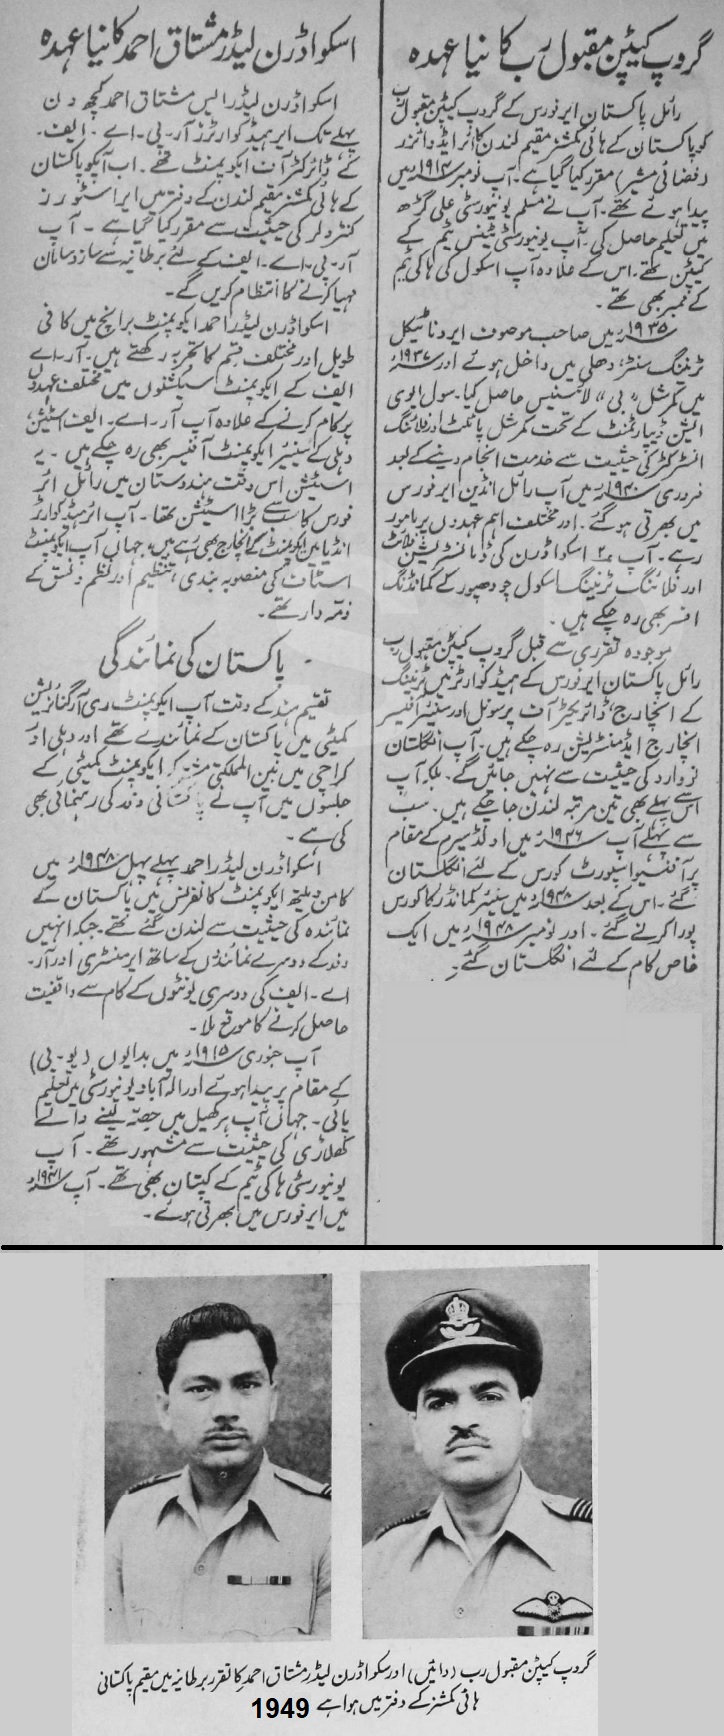 گروپ کیپٹن مقبول رب کا نیا عہدہ
رائل پاکستان ایر فورس کے گروپ کیپٹن مقبول رب
کو پاکستان کے ہائی کمشنر مقیم لندن کا ائر ایڈوائزر
(فضائی مشیر) مقرر کیا گیا ہے۔ آپ نومبر ۱۹۱۳ء میں
پیدا ہوئے تھے۔ آپ نے مسلم یونیورسٹی علی گڑھ
میں تعلیم حاصل کی۔ آپ یونیورسٹی ٹینس ٹیم کے
کیپٹن تھے۔ اس کے علاوہ آپ اسکول کی ہاکی ٹیم
کے ممبر بھی تھے۔
۱۹۳۵ء میں صاحب موصوف ایروناٹیکل
ٹریننگ سنٹر، دھلی میں داخل ہوئے اور ۱۹۳۷ء
میں کمرشل "بی" لائسنیس حاصل کیا۔ سول ایوی
ایشن ڈیپارٹمنٹ کے تحت کمرشل پائلٹ اور فلائنگ
انسٹرکٹر کی حیثیت سے خدمت انجام دینے کے بعد
فروری ۱۹۴۰ء میں آپ رائل انڈین ایر فورس
میں بھرتی ہو گئے۔ اور مختلف اہم عہدوں پر مامور
رہے۔ آپ اسکواڈرن کی فلائٹ
اور فلائنگ ٹریننگ اسکول جودھپور کے کمانڈنگ
افسر بھی رہ چکے ہیں۔
موجودہ تقرری سے قبل گروپ کیپٹن مقبول رب
رائل پاکستان ایر فورس کے ہیڈ کوارٹر میں ٹریننگ
کے انچارج، ڈائریکٹر آف پرسونل اور سنیئر آفیسر
انچارج ایڈمنسٹریشن رہ چکے ہیں۔ آپ انگلستان
نووارد کی حیثیت سے نہیں جائیں گے۔ بلکہ آپ
اس سے پہلے بھی تین مرتبہ لندن جا چکے ہیں۔ سب
سے پہلے آپ ۱۹۴۶ء میں اولڈ سیرم کے مقام
پر آفنسیو اسپورٹ کورس کے لئے انگلستان
گئے۔ اس کے بعد ۱۹۴۸ء میں سنیئر کمانڈر کا کورس
پورا کرنے گئے۔ اور نومبر ۱۹۴۸ء میں ایک
خاص کام کے لئے انگلستان گئے۔
اسکواڈرن لیڈر مشتاق احمد کا نیا عہدہ
اسکواڈرن لیڈر ایس مشتاق احمد کچھ دن
پہلے تک ایر ہیڈ کوارٹرز آر۔ پی۔ اے۔ ایف۔
کے ڈائرکٹر آف ایکوپمنٹ تھے۔ اب آپکو پاکستان
کے ہائی کمشنر مقیم لندن کے دفتر میں ایر اسٹورز
کنٹرولر کی حیثیت سے مقرر کیا گیا ہے۔ آپ
آر۔ پی۔ اے۔ ایف کے لئے برطانیہ سے ساز و سامان
مہیا کرنے کا انتظام کریں گے۔
اسکواڈرن لیڈر احمد ایکوپمنٹ برانچ میں کافی
طویل اور مختلف قسم کا تجربہ رکھتے ہیں۔ آر۔ اے
ایف کے ایکوپمنٹ سیکشنوں میں مختلف عہدوں
پر کام کرنے کے علاوہ آپ آر۔ اے۔ ایف اسٹیشن
دہلی کے سینیئر ایکوپمنٹ آفیسر بھی رہ چکے ہیں۔ یہ
اسٹیشن اس وقت ہندوستان میں رائل ائر
فورس کا سب سے بڑا اسٹیشن تھا۔ آپ ائر ہیڈ کوارٹرز
انڈیا میں ایکوپمنٹ کے انچارج بھی رہے ہیں، جہاں آپ ایکوپمنٹ
اسٹاف کی منصوبہ بندی، تنظیم اور نظم و نسق کے
ذمہ دار تھے۔
پاکستان کی نمائندگی
تقسیم ہند کے وقت آپ ایکوپمنٹ ری آرگنائزیشن
کمیٹی میں پاکستان کے نمائندے تھے اور دہلی اور
کراچی میں بین المملکتی مشترکہ ایکوپمنٹ کمیٹی کے
جلسوں میں آپ نے پاکستانی وفد کی رہنمائی بھی
کی ہے۔
اسکواڈرن لیڈر احمد پہلے پہل ۱۹۴۸ء میں
کامن ویلتھ ایکوپمنٹ کانفرنس میں پاکستان کے
نمائندہ کی حیثیت سے لندن گئے تھے۔ جبکہ انہیں
وفد کے دوسرے نمائندوں کے ساتھ ایر منسٹری اور آر۔
اے۔ ایف کی دوسری یونٹوں کے کام سے واقفیت
حاصل کرنے کا موقع ملا۔
آپ جنوری ۱۹۱۵ء میں بدایوں (یو۔ پی)
کے مقام پر پیدا ہوئے اور الہ آباد یونیورسٹی میں تعلیم
پائی۔ جہاں آپ ہر کھیل میں حصہ لینے والے
کھلاڑی کی حیثیت سے مشہور تھے۔ آپ
یونیورسٹی ہاکی ٹیم کے کپتان بھی تھے۔ آپ ۱۹۴۱ء
میں ایر فورس میں بھرتی ہوئے۔
گروپ کیپٹن مقبول رب (دائیں) اور سکواڈرن لیڈر مشتاق احمد کا تقرر برطانیہ میں مقیم پاکستانی
ہائی کمشنر کے دفتر میں ہوا ہے 1949